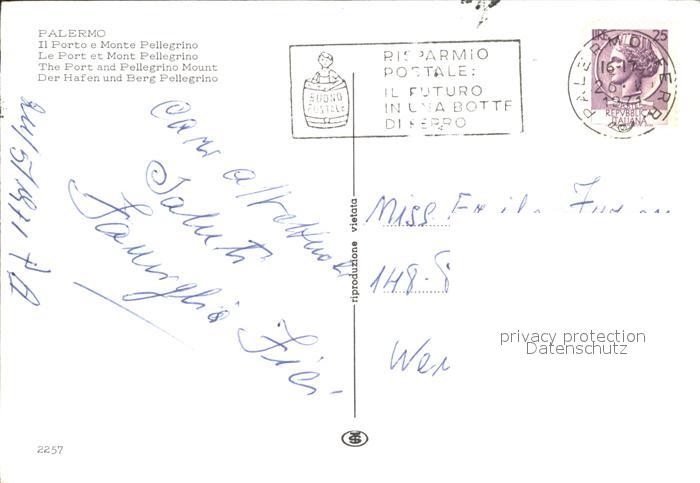 PALERMO
Il Porto e Monte Pellegrino
Le Port et Mont Pellegrino
The Port and Pellegrino Mount
Der Hafen und Berg Pellegrino
RISPARMIO
POSTALE:
IL FUTURO
IN UNA BOTTE
DI FERRO
BUONO
POSTALE
LIRE 25
PALERMO FERR.
16-17
1971
REPVBBLICA
ITALIANA
Cari affettuosi
Saluti
Famiglia
24/5/1971 PA
riproduzione vietata
Miss.
148-8
privacy protection
Datenschutz
2257